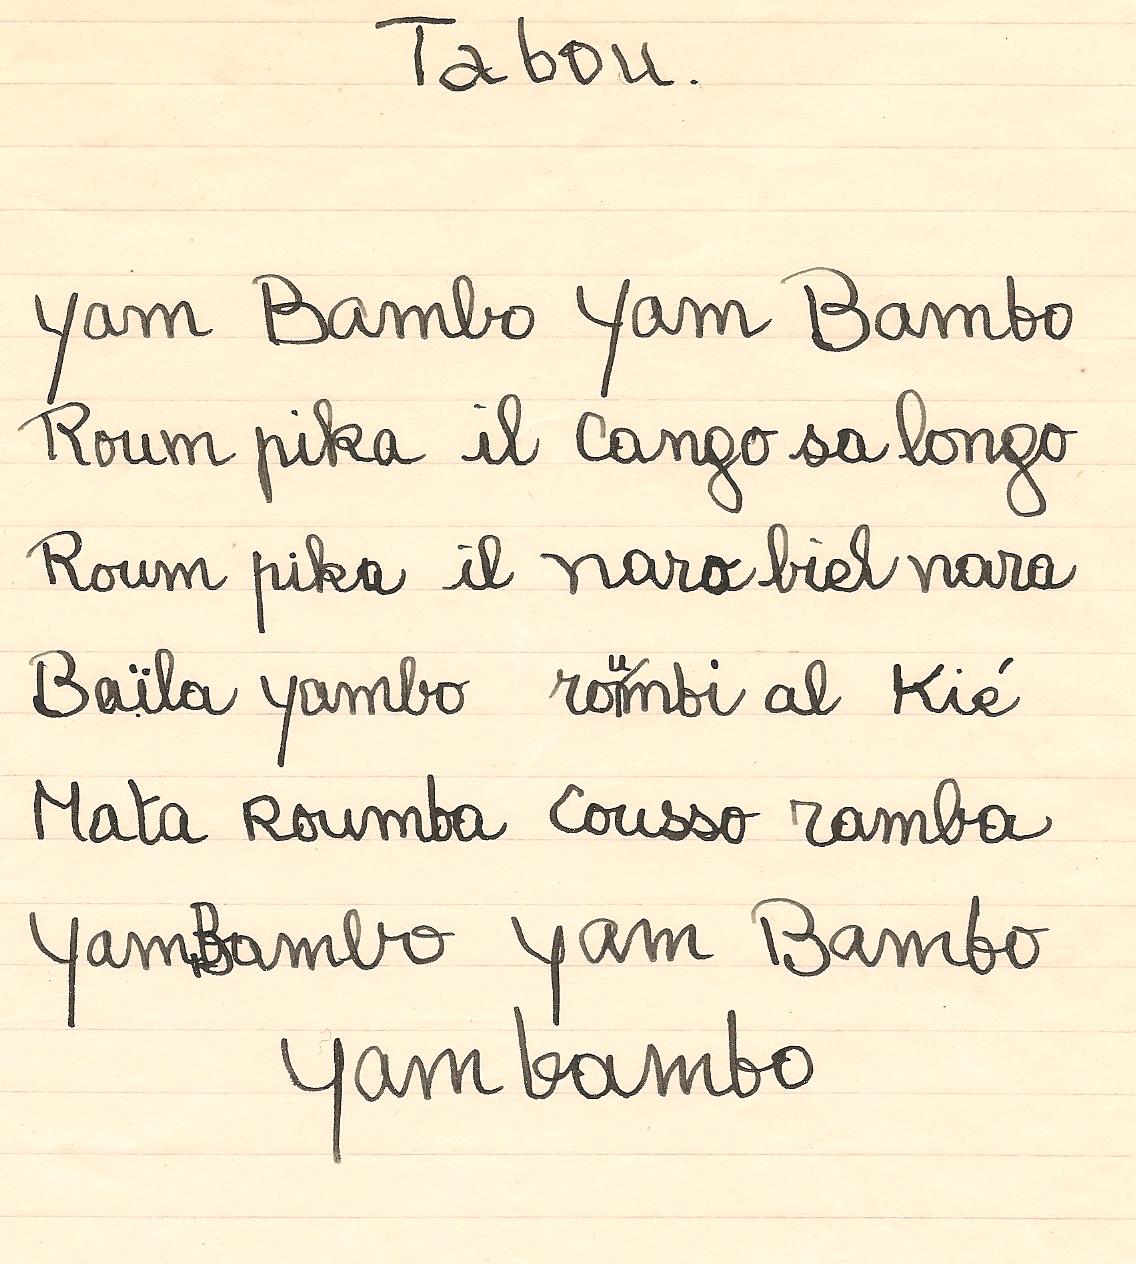 Tabou.
Yam Bambo Yam Bambo
Roum pika il Cango sa longo
Roum pika il naro biel nara
Baïla yambo roumbi al Kié
Mata Roumba Cousso ramba
Yam Bambo Yam Bambo
Yam bambo